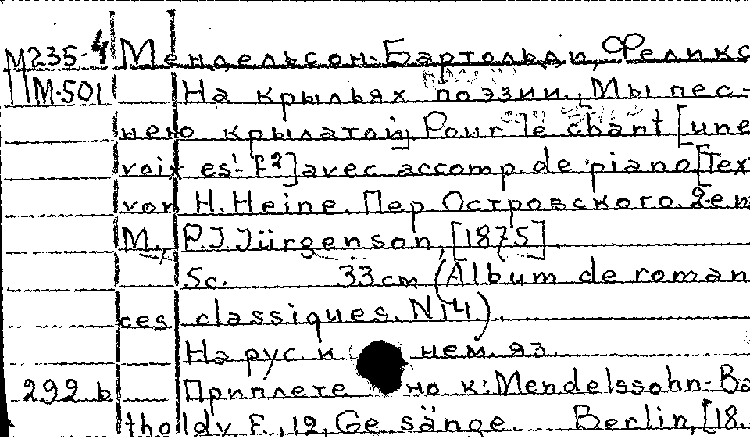 М235-4 Мендельсон-Бартольди, Феликс
М-501 На крыльях поэзии. Мы пес-
нею крылатой Pour le chant [une
voix es1-f2] avec accomp. de piano [Tex
von H. Heine. Пер Островского
М., P.J. Jürgenson, [1875].
5с. 33см (Album de roman
ces classiques. N14)
На рус и нем. яз.
292 b Приплетено к: Mendelssohn-Ba
tholdy F., 12, Gesänge. Berlin, [18.